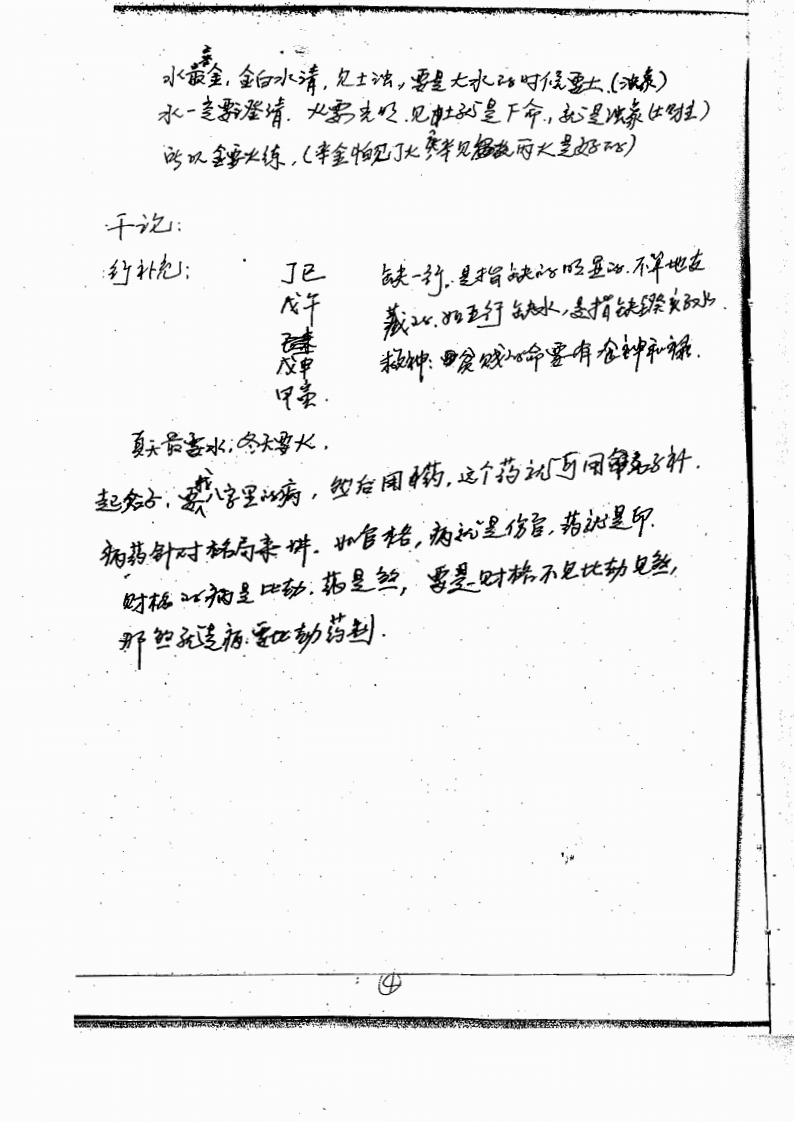 水要金,金白水清,见土浊,要是大水的时候要土.(浊象)
水一定要澄清. 火要光明.见土就是下命.,就是浊象(土附主)
所以金要火练,(辛金怕见丁火 见丙火是好的)
干论:
行补充: 丁巳 缺一行.是指缺的明显的.不单地支
戊午 藏的.如五行缺水,是指缺癸亥的水.
戊申 救神:贫贱的命要有食神和禄.
甲寅.
夏天最要水,冬天要火.
起名子,要找八字里的病,然后用药,这个药就可用名子补.
病药针对格局来讲. 如官格,病就是伤官,药就是印.
财格的病是比劫.药是煞, 要是财格不见比劫见煞,
那煞就是病.要比劫药制.
④